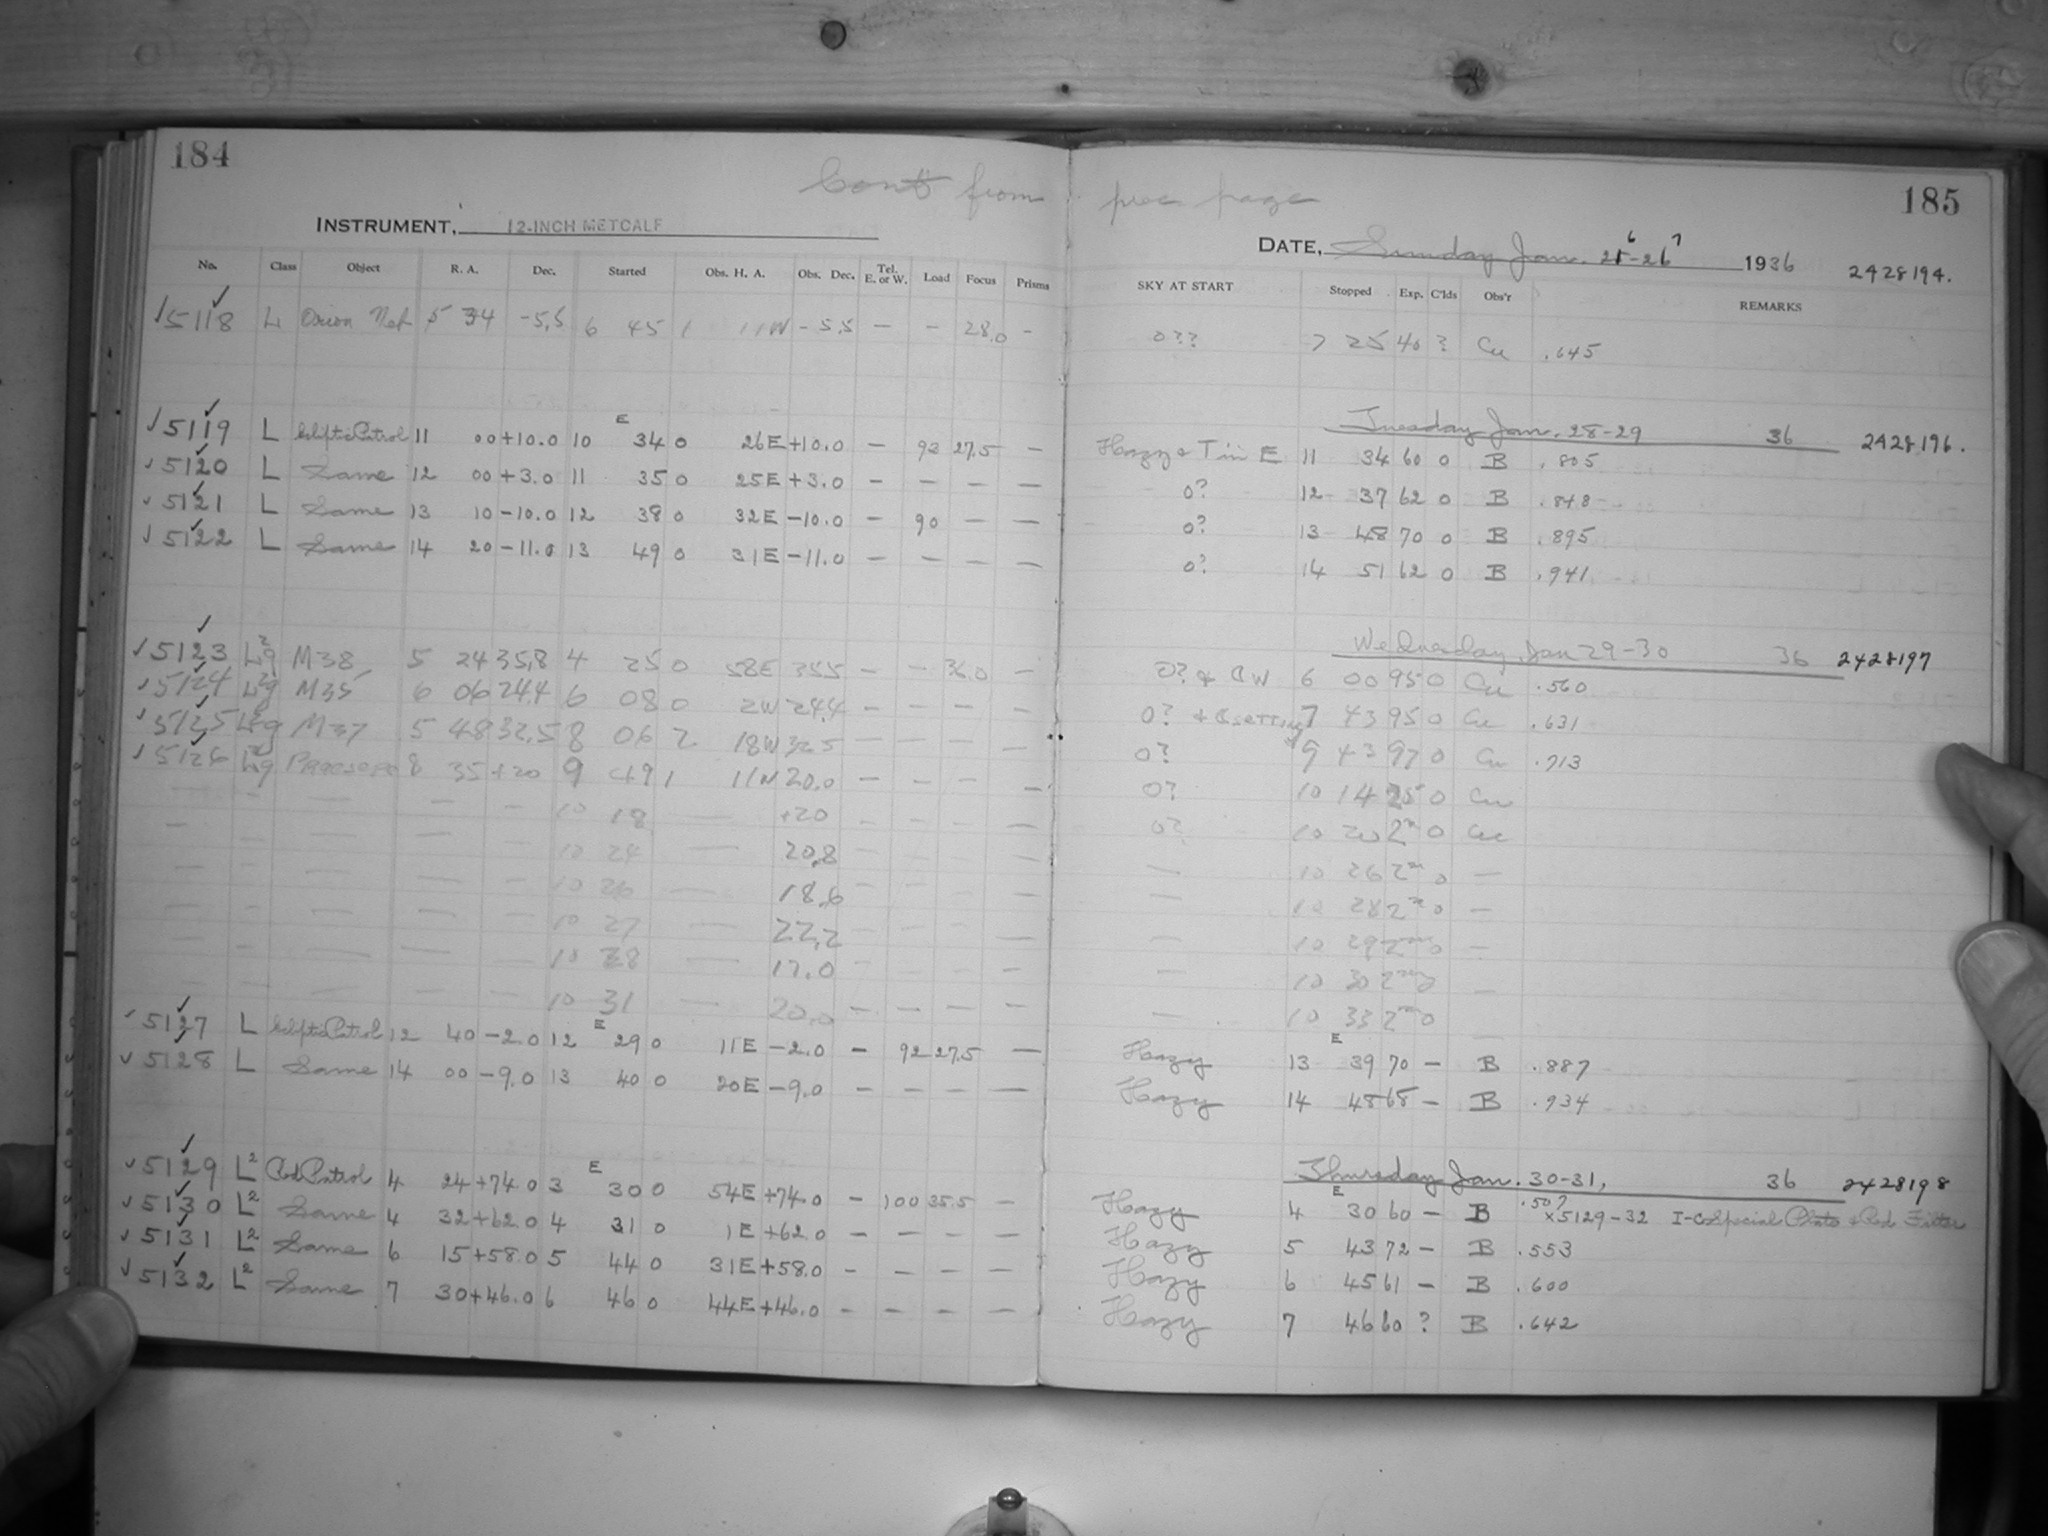 184
Cont from prec. page
185
INSTRUMENT, 12-INCH METCALF
DATE, Sunday Jan. 26-27 1936 2428194.
No. Class Object R. A. Dec. Started Obs. H. A. Obs. Dec. Tel. E. or W. Load Focus Prisms SKY AT START Stopped Exp. C'lds Obs'r REMARKS
✓5118 L Orion Neb 5 34 -5.5 6 45 1 11W -5.5 — — 28.0 — 0?? 7 25 40 ? Cu .645
Tuesday Jan. 28-29 36 2428196.
✓5119 L Ecliptic Patrol 11 00 +10.0 10 E 34 0 26E +10.0 — 93 27.5 — Hazy + Tin E 11 34 60 0 B .805
✓5120 L Same 12 00 +3.0 11 35 0 25E +3.0 — — — — 0? 12 37 62 0 B .848
✓5121 L Same 13 10 -10.0 12 38 0 32E -10.0 — 90 — — 0? 13 48 70 0 B .895
✓5122 L Same 14 20 -11.0 13 49 0 31E -11.0 — — — — 0? 14 51 62 0 B .941
Wednesday Jan 29-30 36 2428197
✓5123 M38 5 24 35.8 4 25 0 58E 35.5 — — 36.0 — 6 00 95 0 Cu .560
✓5124 M35 6 06 24.4 6 08 0 2W 24.4 — — — — 0? 7 43 95 0 Cu .631
✓5125 M37 5 48 32.5 8 06 2 18W 32.5 — — — — 0? 9 43 97 0 Cu .713
✓5126 Praesepe 8 35 +20 9 49 1 11W 20.0 — — — — 0? 10 14 25 0 Cu
— — — — — 10 18 — +20 — — — — 0? 10 20 2m 0 Cu
— — — — — 10 24 — 20.8 — — — — — 10 26 2m 0 —
— — — — — 10 26 — 18.6 — — — — — 10 28 2m 0 —
— — — — — 10 27 — 22.2 — — — — — 10 29 2m 0 —
— — — — — 10 28 — 17.0 — — — — — 10 30 2m 0 —
— — — — — 10 31 — 20.0 — — — — — 10 33 2m 0 —
✓5127 L Ecliptic Patrol 12 40 -2.0 12 E 29 0 11E -2.0 — 92 27.5 — Hazy 13 E 39 70 — B .887
✓5128 L Same 14 00 -9.0 13 40 0 20E -9.0 — — — — Hazy 14 48 68 — B .934
Thursday Jan. 30-31, 36 2428198
✓5129 L² Red Patrol 4 24 +74.0 3 E 30 0 54E +74.0 — 100 35.5 — Hazy 4 E 30 60 — B .507 x5129-32 I-C Special Plate + Red Filter
✓5130 L² Same 4 32 +62.0 4 31 0 1E +62.0 — — — — Hazy 5 43 72 — B .553
✓5131 L² Same 6 15 +58.0 5 44 0 31E +58.0 — — — — Hazy 6 45 61 — B .600
✓5132 L² Same 7 30 +46.0 6 46 0 44E +46.0 — — — — Hazy 7 46 60 ? B .642